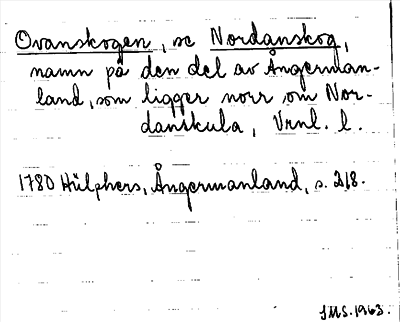 Ovanskogen, se Nordanskog,
namn på den del av Ångerman-
land, som ligger norr om Nor-
danskula, Vrnl. l.
1780 Hülphers, Ångermanland, s. 218.
JMS. 1963.